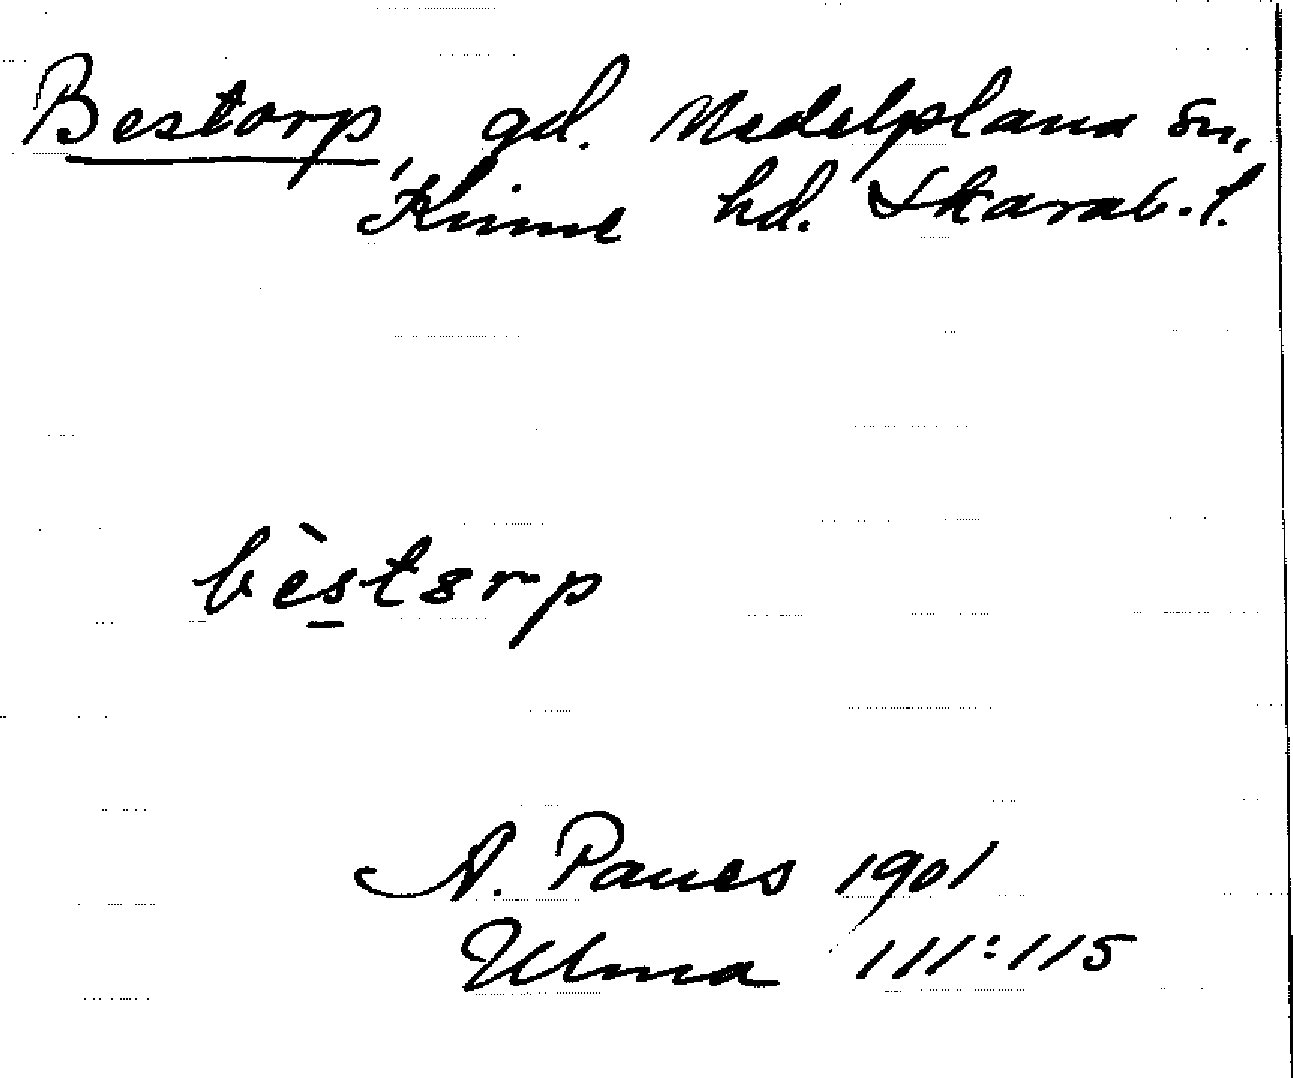 Bestorp, gd. Medelplana sn,
Kinne hd. Skarab. l.
bèstɜrp
A. Paues 1901
Ulma 111:115